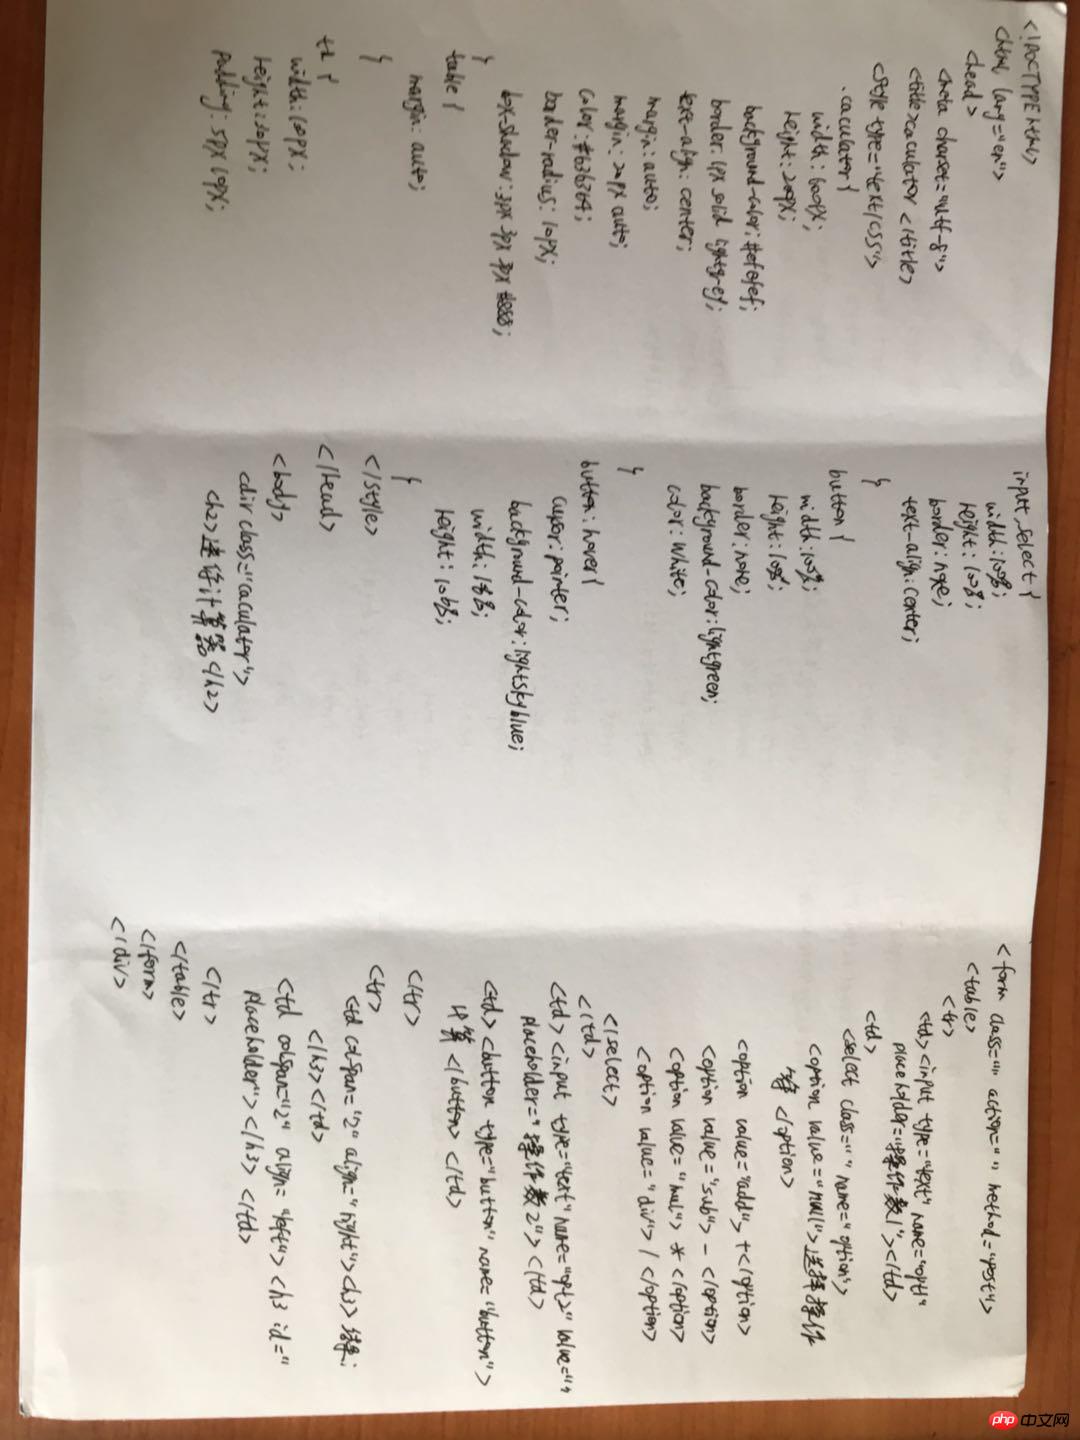 <!DOCTYPE html>
<html lang="en">
<head>
<meta charset="utf-8">
<title>caculator</title>
<style type="text/css">
.caculator{
width: 600px;
height: 200px;
background-color: #efefef;
border: 1px solid lightgrey;
text-align: center;
margin: auto;
margin: 20px auto;
color: #636364;
border-radius: 10px;
box-shadow: 3px 3px 3px #888;
}
table{
margin: auto;
}
td{
width: 100px;
height: 30px;
padding: 5px 10px;
input,select{
width: 100%;
height: 100%;
border: none;
text-align: center;
}
button{
width: 100%;
height: 100%;
border: none;
background-color: lightgreen;
color: white;
}
button:hover{
cursor: pointer;
background-color: lightskyblue;
width:
height:
}
</style>
</head>
<body>
<div class="caculator">
<h2>迷你计算器</h2>
<form class="" action="" method="post">
<table>
<tr>
<td><input type="text" name="opt1"
placeholder="操作数1"></td>
<td>
<select class="" name="option">
<option value="null">选择操作
</option>
<option value="add">+</option>
<option value="sub">-</option>
<option value="mul">*</option>
<option value="div">/</option>
</select>
</td>
<td><input type="text" name="opt2" value=""
placeholder="操作数2"><td>
<td><button type="button" name="button">
计算</button></td>
</tr>
<tr>
<td colspan="2" align="right"><h3>结果:
</h3></td>
<td colspan="2" align="left"><h3 id="
placeholder"></h3></td>
</tr>
</table>
</form>
</div>
php中文网